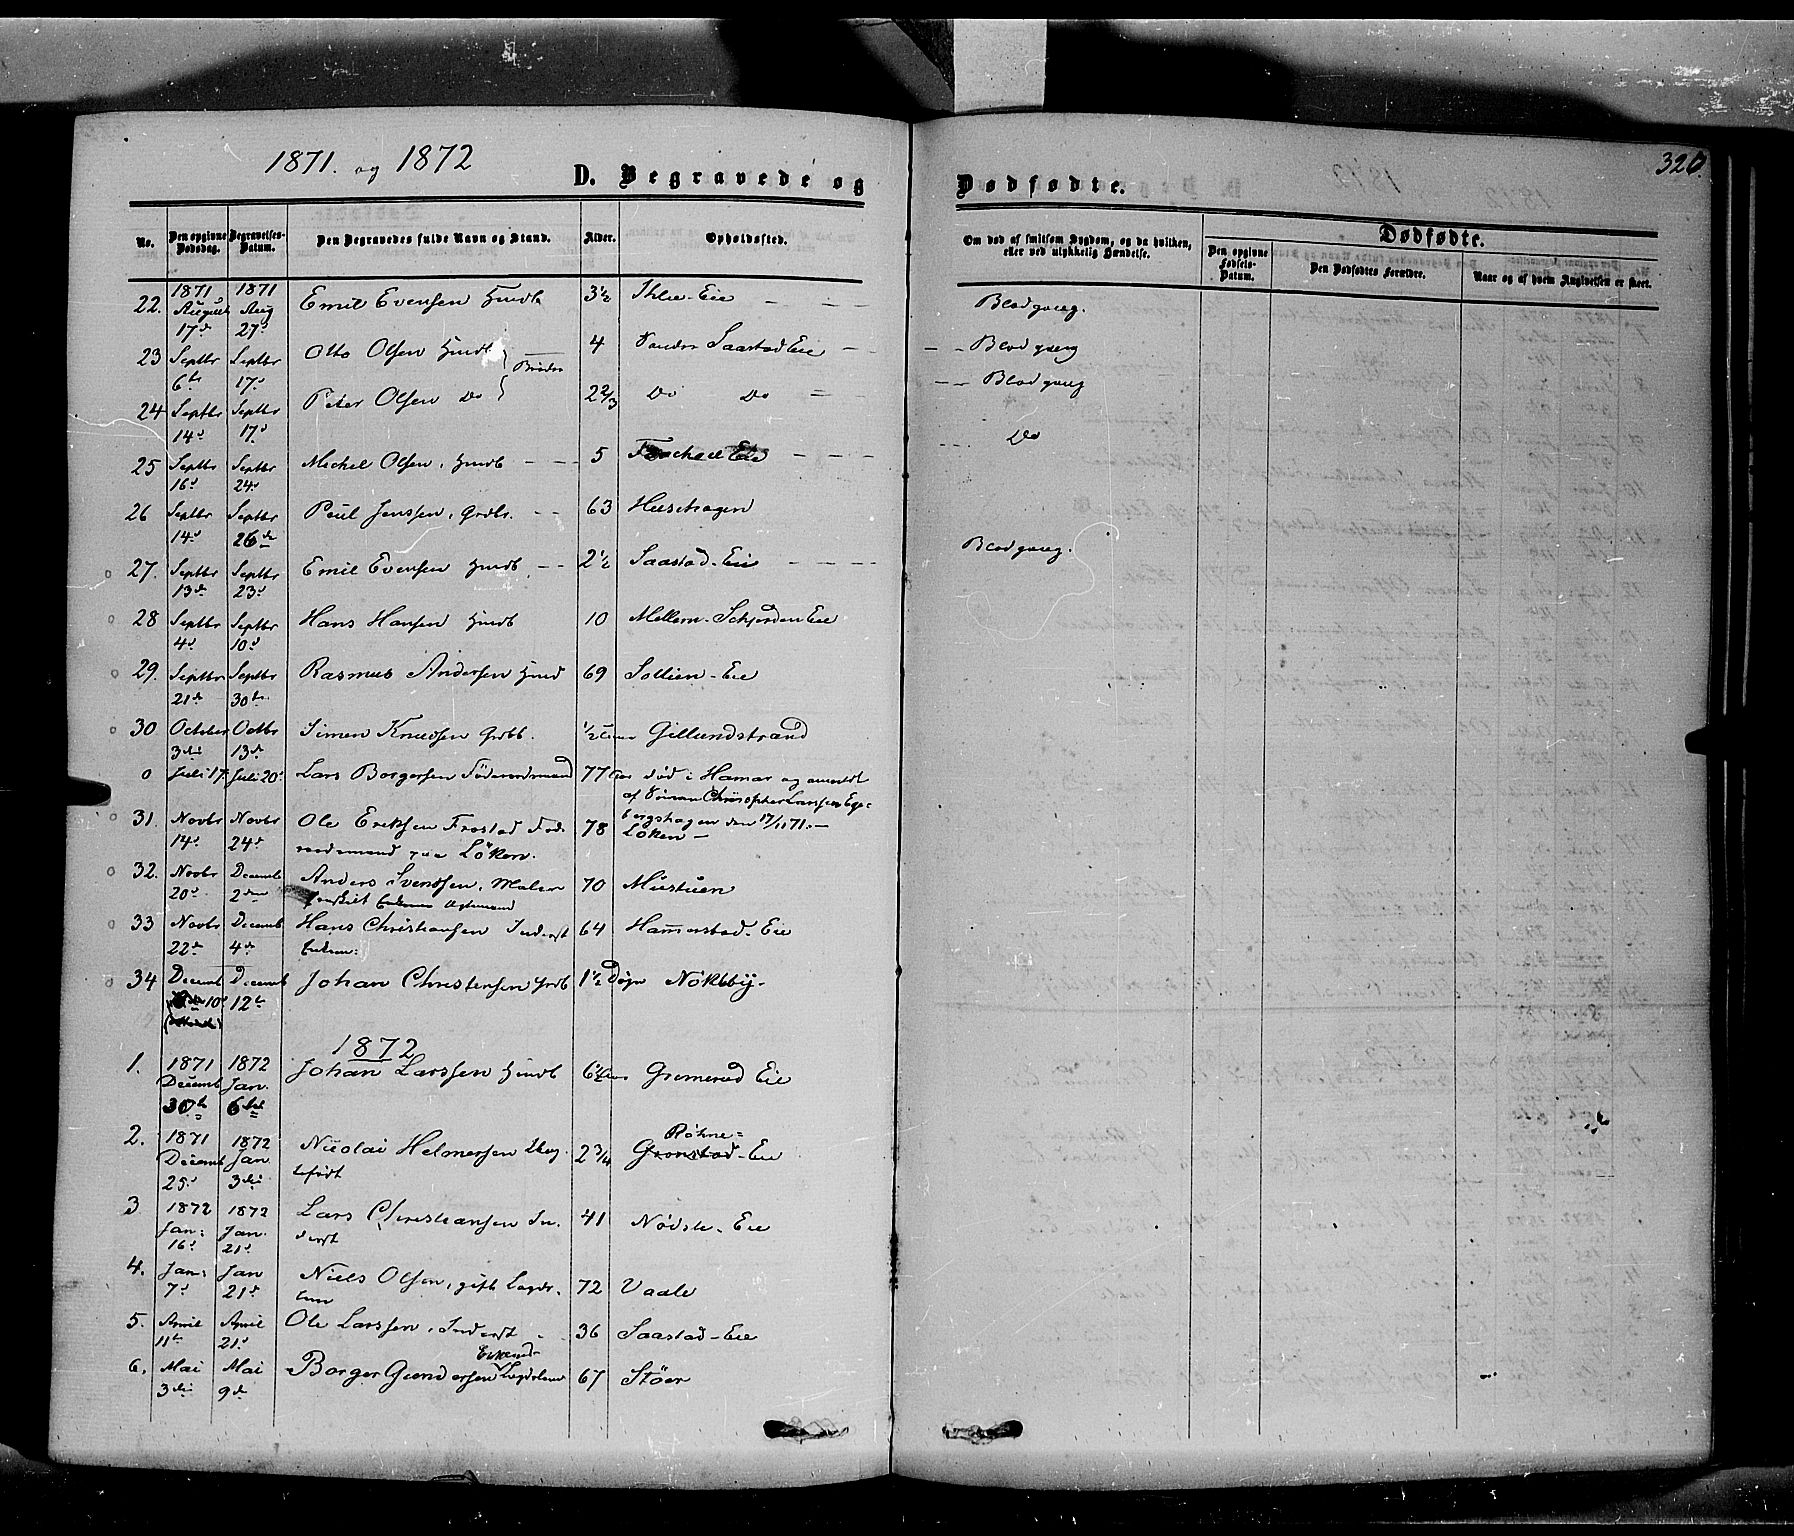 1871. og 1872
D. Begravede og
Dødfødte.
320.
No.
Den opgivne Dødsdag.
Begravelses-Datum.
Den Begravedes fulde Navn og Stand.
Alder.
Opholdssted.
Om død af smitsom Sygdom, og da hvilken, eller ved ulykkelig Hændelse.
Dødfødte.
Den opgivne Fødsels-Datum.
Den Dødfødtes Forældre.
Naar og af hvem Angivelsen er skeet.
22. 1871 August 17de 1871 Aug 27d Emil Evensen Hmdb 3½ Ihle-Eie - - Blodgang.
23 Septbr 6te Septbr 17d Otto Olsen Hmdb 4 Søndre Saastad Eie - - Blodgang
Brødre
24 Septbr 14d Septbr 17d Peter Olsen Do 2 2/3 Do Do - - - Blodgang
25 Septbr 16d Septbr 24d Michel Olsen, Hmdb - - 5 Eie - - - Do
26 Septbr 14d Septbr 26de Poul Jenssen, Grdbr. - - 63 Huschagen
27. Septbr 13de Septbr 23d Emil Evensen Hmdb - - 2½ Saastad-Eie - - - Blodgang.
28 Septbr 4d Septbr 10d Hans Hansen Hmdb 10 Mellem-Schjerden Eie
29. Septbr 21de Septbr 30te Rasmus Andersen Hmd 69 Sollien-Eie
30 October 3die Octbr 13de Simen Knudsen Grdb. ½ Gillundstrand
0 Juli 17 Juli 20d Lars Borgersen Føderaadsmand 77 Aar død i Hamar og anmeldt
af Sønnen Christopher Larssen Ege-
bergshagen den 17/11 71. -
31. Novbr 14d Novbr 24d Ole Eriksen Frostad Fød- 78 Löken -
raadsmand paa Löken.
32. Novbr 20d Decemb 2den Anders Svendsen, Maler 70 Mustuen
fraskilt Ægtemand
33 Novbr 22de Decemb 4de Hans Christiansen Inderst 64 Hammerstad-Eie
Enkem:
34 Decemb 10d Decemb 12te Johan Christensen Grdb 1½ Døgn Nökleby.
1872
1. 1871 Decemb 30te 1872 Jan. 6te Johan Larssen Hmdb 6½ Aar Gremerud Eie
2. 1871 Decemb 25d 1872 Jan 3die Nicolai Helmersen Uæg- 2 3/4 Røhne-
tefødt Gronstad-Eie
3 1872 Jan: 16d 1872 Jan. 21d Lars Christiansen In- 41 Nødste-Eie
derst
4. Jan: 7d Jan 21d Niels Olsen, gift Lægds- 72 Vaale
lem
5. April 11te April 21d Ole Larssen, Inderst - 36 Saastad-Eie
6. Mai 3die Mai 9de Borger Gundersen Enkemd- Lægdslem 67 Stöer